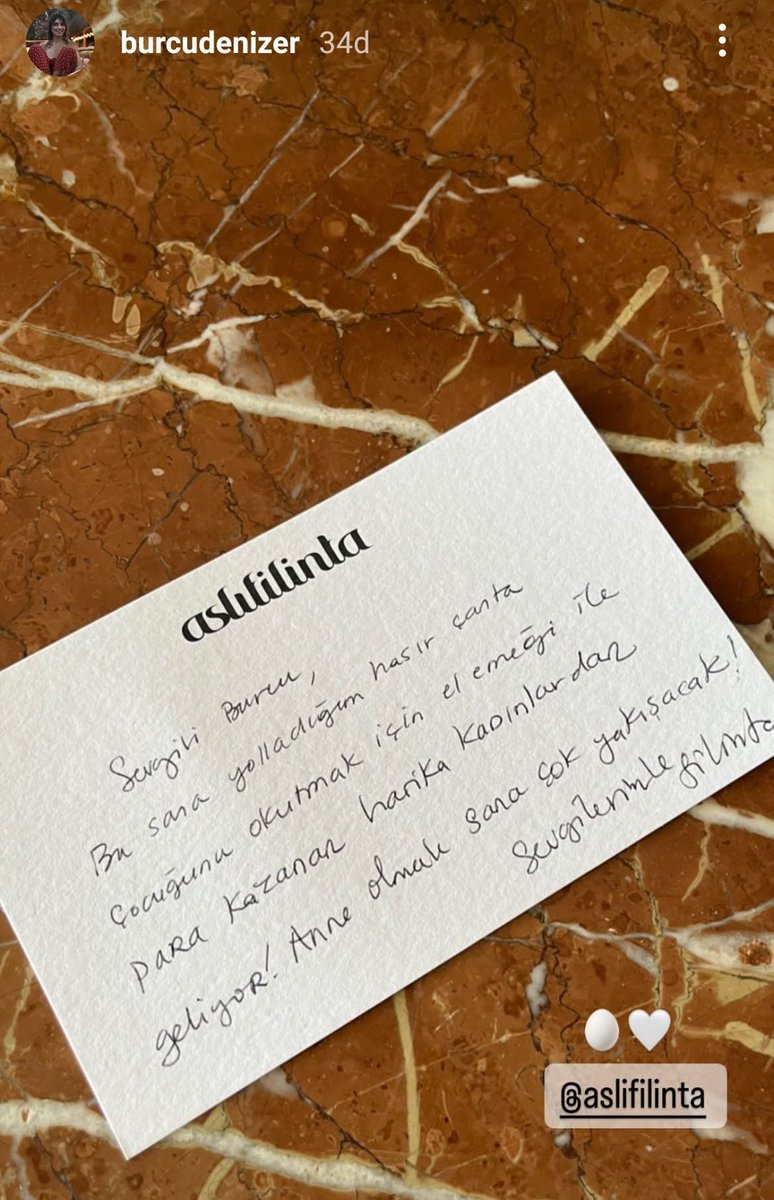 burcudenizer 34d
aslıfilinta
Sevgili Burcu,
Bu sana yolladığım hasır çanta
çocuğunu okutmak için el emeği ile
para kazanan harika kadınlardan
geliyor! Anne olmak sana çok yakışacak!
Sevgilerimle filinta
@aslifilinta